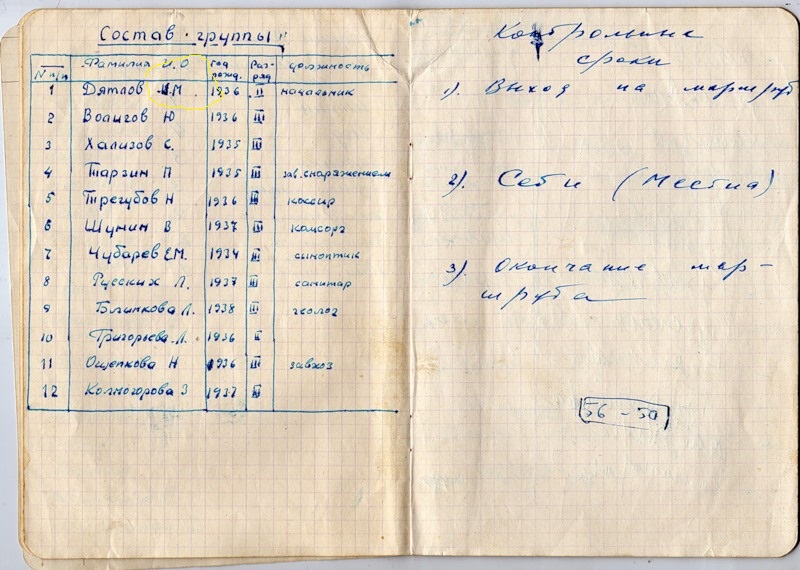 Состав группы
N п/п Фамилия И.О год рожд. Раз-ряд должность
1 Дятлов И.М. 1936 II начальник
2 Волигов Ю 1936 III
3 Хализов С. 1935 III
4 Тарзин П 1935 III зав. снаряжением
5 Трегубов Н 1936 III кассир
6 Шунин В 1937 III комсорг
7 Чубарев Е.М. 1934 III синоптик
8 Русских Л. 1937 III санитар
9 Блинкова Л. 1938 III геолог
10 Григорьева Л. 1936 II
11 Ощепкова Н 1936 III завхоз
12 Колмогорова З 1937 III
Контрольные
сроки
1). Выход на маршрут
2). Сеты (Местиа)
3). Окончание мар-
шрута
56-50